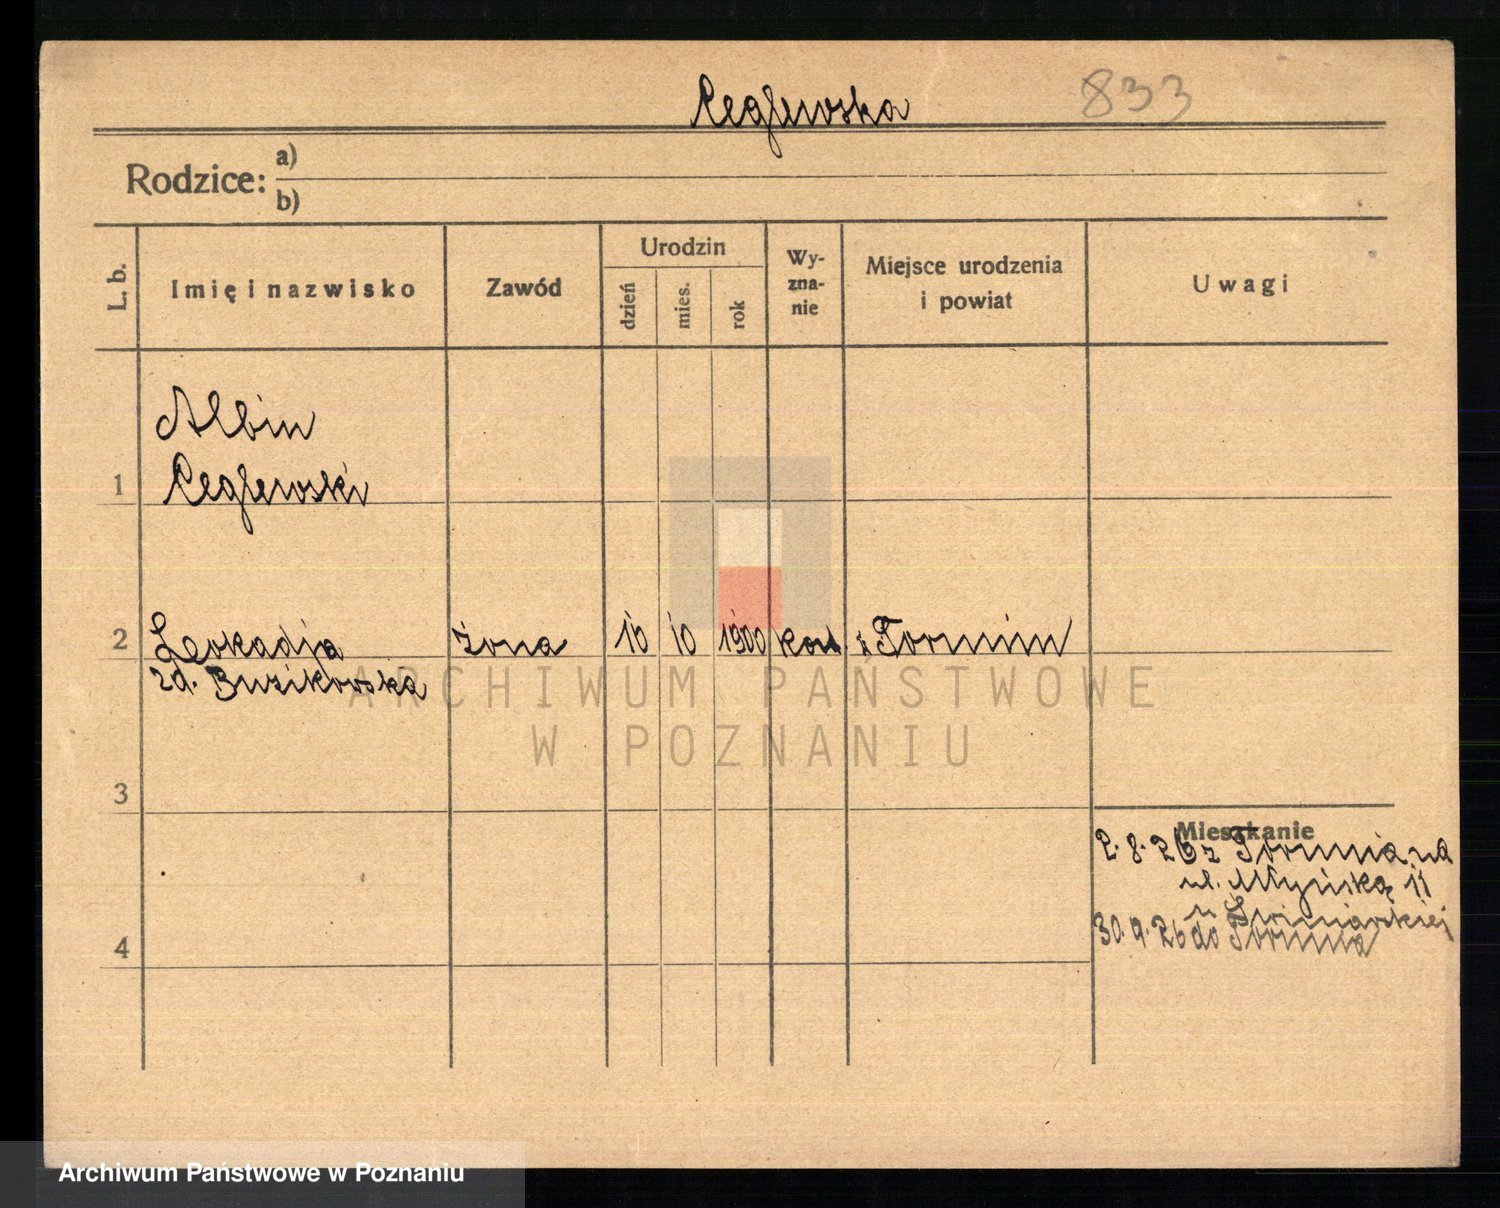 Ceglewska 833
Rodzice: a)
b)
L. b. Imię i nazwisko Zawód Urodzin dzień mies. rok Wy-zna-nie Miejsce urodzenia i powiat Uwagi
Albin
1 Ceglewski
2 Leokadja żona 16 10 1900 kat Toruniu
zd. Buzikowska
ARCHIWUM PAŃSTWOWE
W POZNANIU
3
Mieszkanie
2.8.26 z Torunia na
ul. Młyńską 11
30.9.26 do Torunia
4
Archiwum Państwowe w Poznaniu